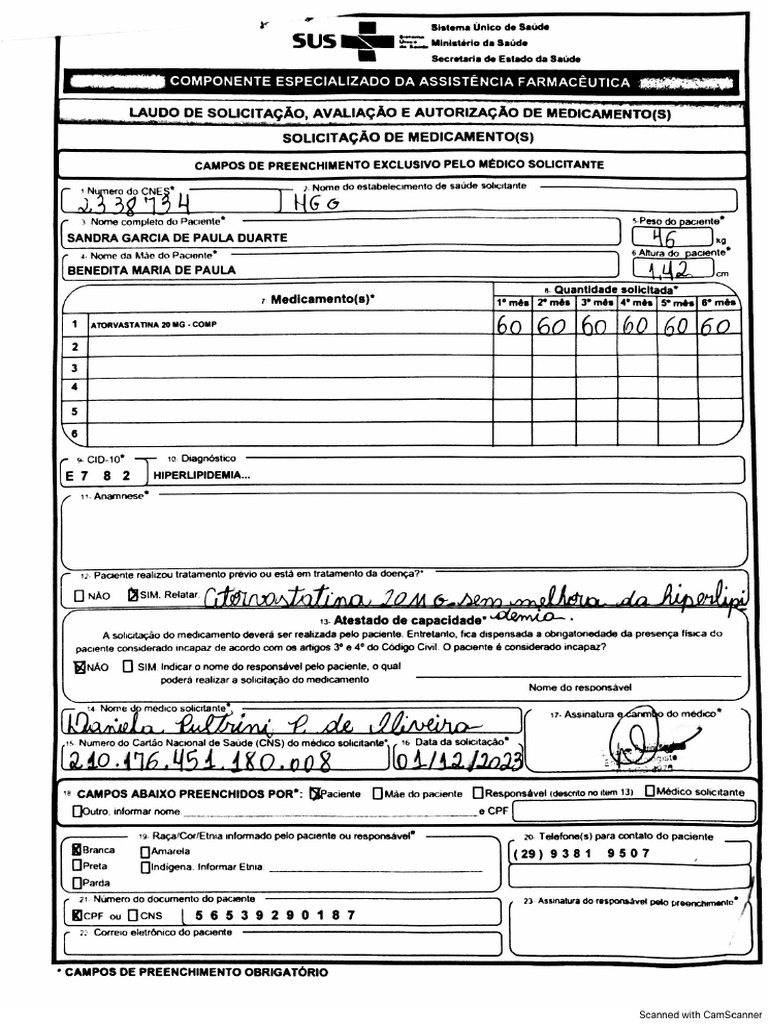 SUS Sistema Único de Saúde
Sistema Único de Saúde
Ministério da Saúde
Secretaria de Estado da Saúde
COMPONENTE ESPECIALIZADO DA ASSISTÊNCIA FARMACÊUTICA
LAUDO DE SOLICITAÇÃO, AVALIAÇÃO E AUTORIZAÇÃO DE MEDICAMENTO(S)
SOLICITAÇÃO DE MEDICAMENTO(S)
CAMPOS DE PREENCHIMENTO EXCLUSIVO PELO MÉDICO SOLICITANTE
1- Numero do CNES* 2- Nome do estabelecimento de saúde solicitante
2338734 HGG
3- Nome completo do Paciente* 5- Peso do paciente*
SANDRA GARCIA DE PAULA DUARTE 46 kg
4- Nome da Mãe do Paciente* 6 Altura do paciente*
BENEDITA MARIA DE PAULA 1,42 cm
7. Medicamento(s)* 8- Quantidade solicitada*
1º mês 2º mês 3º mês 4º mês 5º mês 6º mês
1 ATORVASTATINA 20 MG - COMP 60 60 60 60 60 60
2
3
4
5
6
9- CID-10* 10- Diagnóstico
E 7 8 2 HIPERLIPIDEMIA...
11- Anamnese*
12- Paciente realizou tratamento prévio ou está em tratamento da doença?*
NÃO SIM. Relatar. Atorvastatina 20MG sem melhora da hiperlipi
demia.
13- Atestado de capacidade*
A solicitação do medicamento deverá ser realizada pelo paciente. Entretanto, fica dispensada a obrigatoriedade da presença física do
paciente considerado incapaz de acordo com os artigos 3º e 4º do Código Civil. O paciente é considerado incapaz?
NÃO SIM. Indicar o nome do responsável pelo paciente, o qual
poderá realizar a solicitação do medicamento
Nome do responsável
14- Nome do médico solicitante* 17- Assinatura e carimbo do médico*
Daniela Pultrini P. de Oliveira
15- Numero do Cartão Nacional de Saúde (CNS) do médico solicitante* 16- Data da solicitação*
210.176.451.180.008 01/12/2023
18- CAMPOS ABAIXO PREENCHIDOS POR*: Paciente Mãe do paciente Responsável (descrito no item 13) Médico solicitante
Outro, informar nome e CPF
19- Raça/Cor/Etnia informado pelo paciente ou responsável* 20- Telefone(s) para contato do paciente
Branca Amarela (29) 9381 9507
Preta Indígena. Informar Etnia:
Parda
21- Número do documento do paciente 23- Assinatura do responsável pelo preenchimento*
CPF ou CNS 5 6 5 3 9 2 9 0 1 8 7
22- Correio eletrônico do paciente
* CAMPOS DE PREENCHIMENTO OBRIGATÓRIO
Scanned with CamScanner